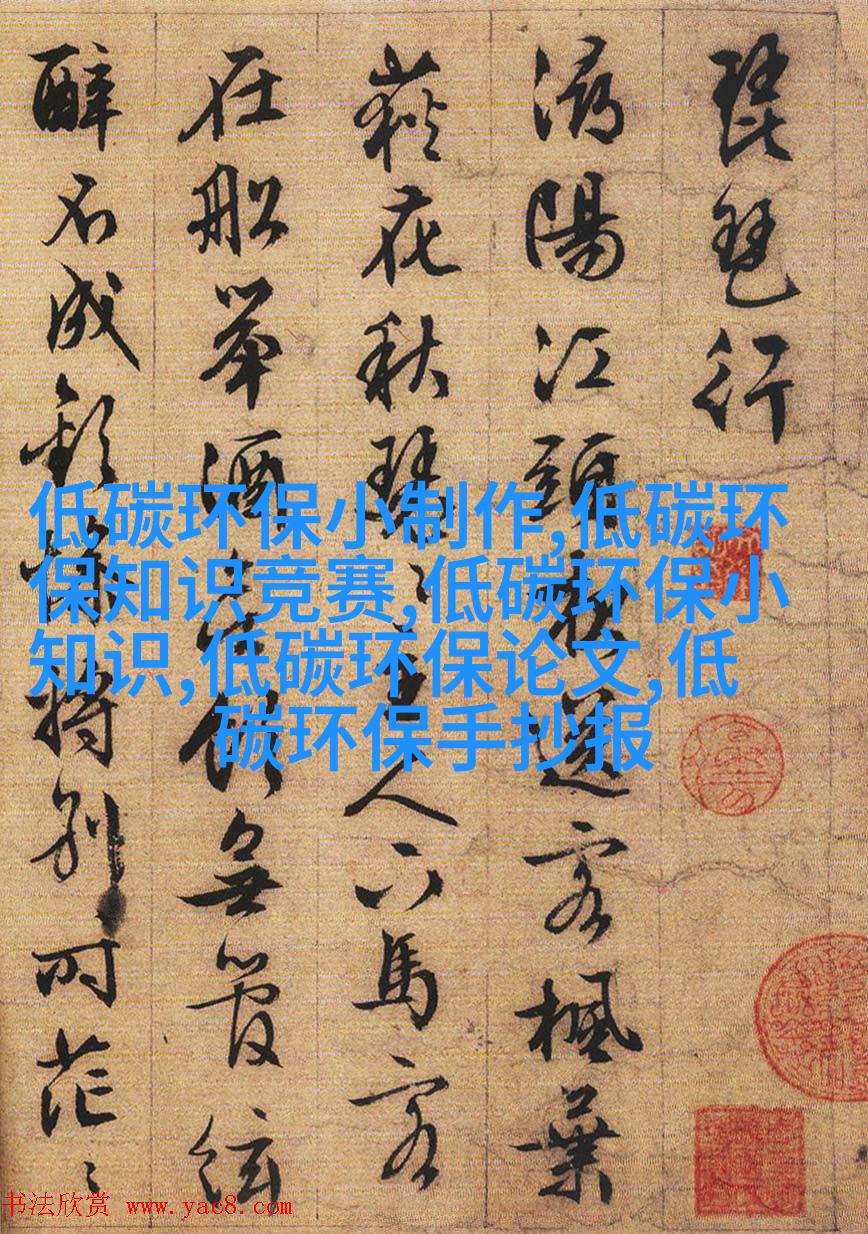 琵琶行
潯陽江頭夜送客楓葉
荻花秋瑟〻主人下馬客
在船舉酒欲飲無管絃
醉不成歡慘將別〻時茫〻
低碳环保小制作,低碳环
保知识竞赛,低碳环保小
知识,低碳环保论文,低
碳环保手抄报
书法欣赏 www.yac8.com